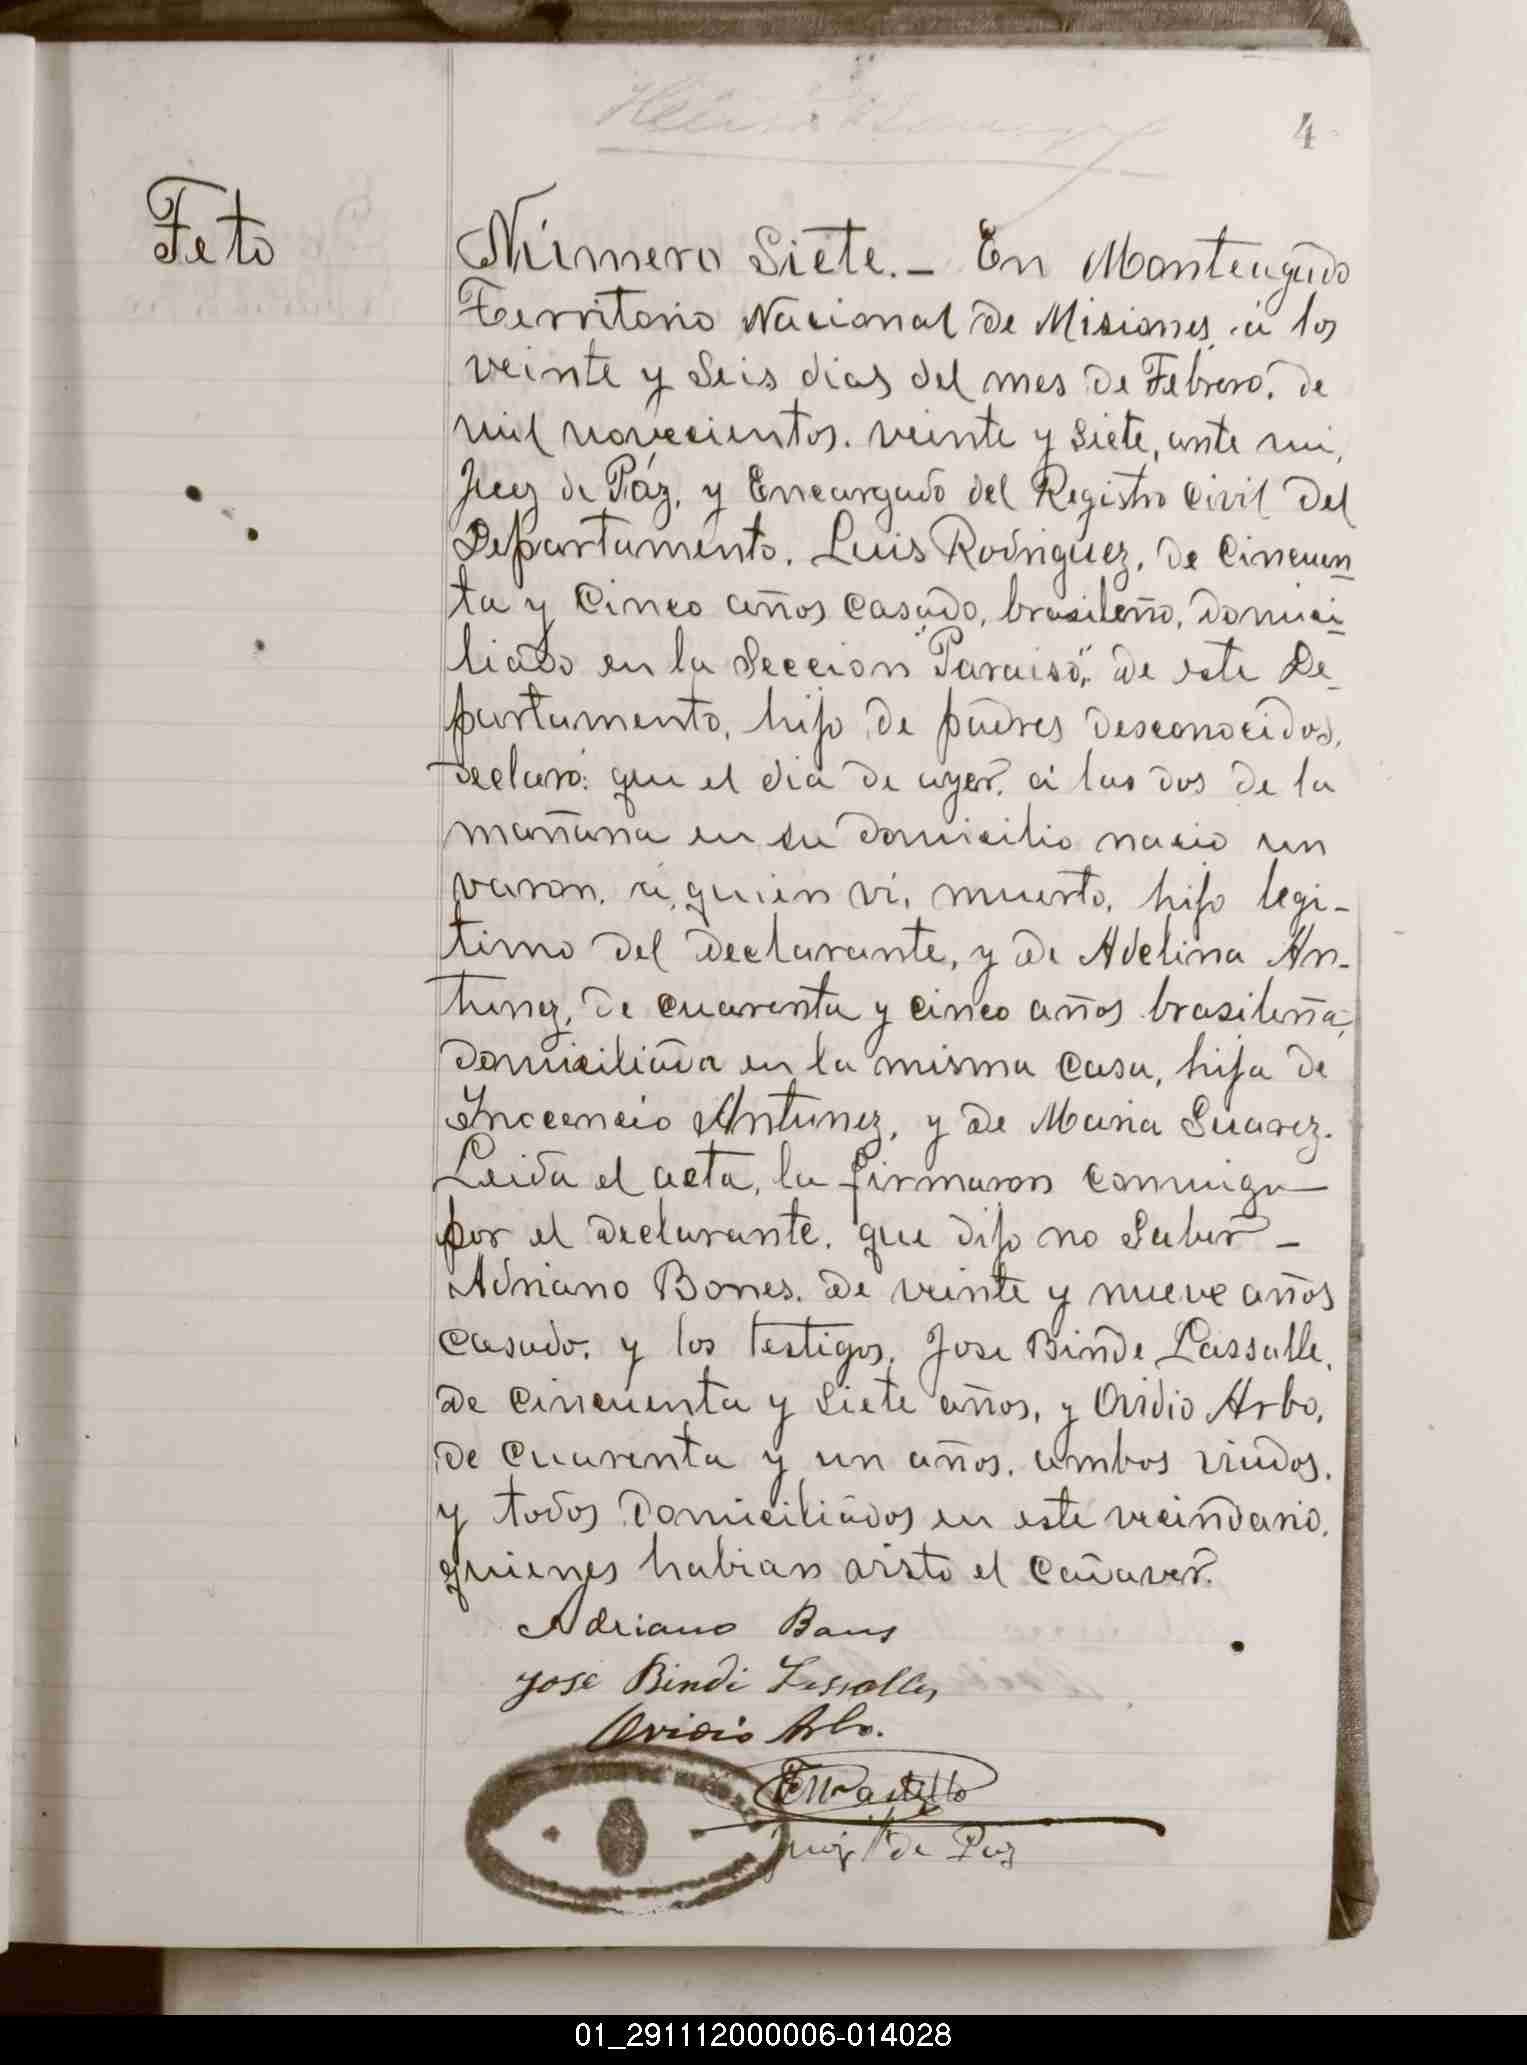 4
Feto
Número Siete.- En Monteagudo
Territorio Nacional de Misiones, á los
veinte y Seis dias del mes de Febrero, de
mil novecientos. veinte y Siete, ante mi,
Juez de Páz, y Encargado del Registro Civil del
Departamento, Luis Rodriguez, de Cincuen_
ta y Cinco años Casado, brasileño, domici_
liado en la Seccion "Paraiso", de este De_
partamento, hijo de padres desconocidos,
declaró: que el dia de ayer, á las dos de la
mañana en su domicilio nacio un
varon, á quien vi, muerto, hijo legi-
timo del declarante, y de Adelina An-
tunez, de cuarenta y cinco años brasileña,
domiciliada en la misma Casa, hija de
Inocencio Antunez, y de Maria Suarez.
Leida el acta, la firmaron conmigo—
por el declarante, que dijo no Saber—
Adriano Bones, de veinte y nueve años
Casado, y los testigos, Jose Binde Lassalle,
de Cincuenta y Siete años, y Ovidio Arbo,
de Cuarenta y un años, ambos viudos,
y todos domiciliados en este vecindario,
quienes habian visto el Cadaver.
Adriano
Jose Bindi
Ovidio Arbo.
Juez de Paz
01_291112000006-014028